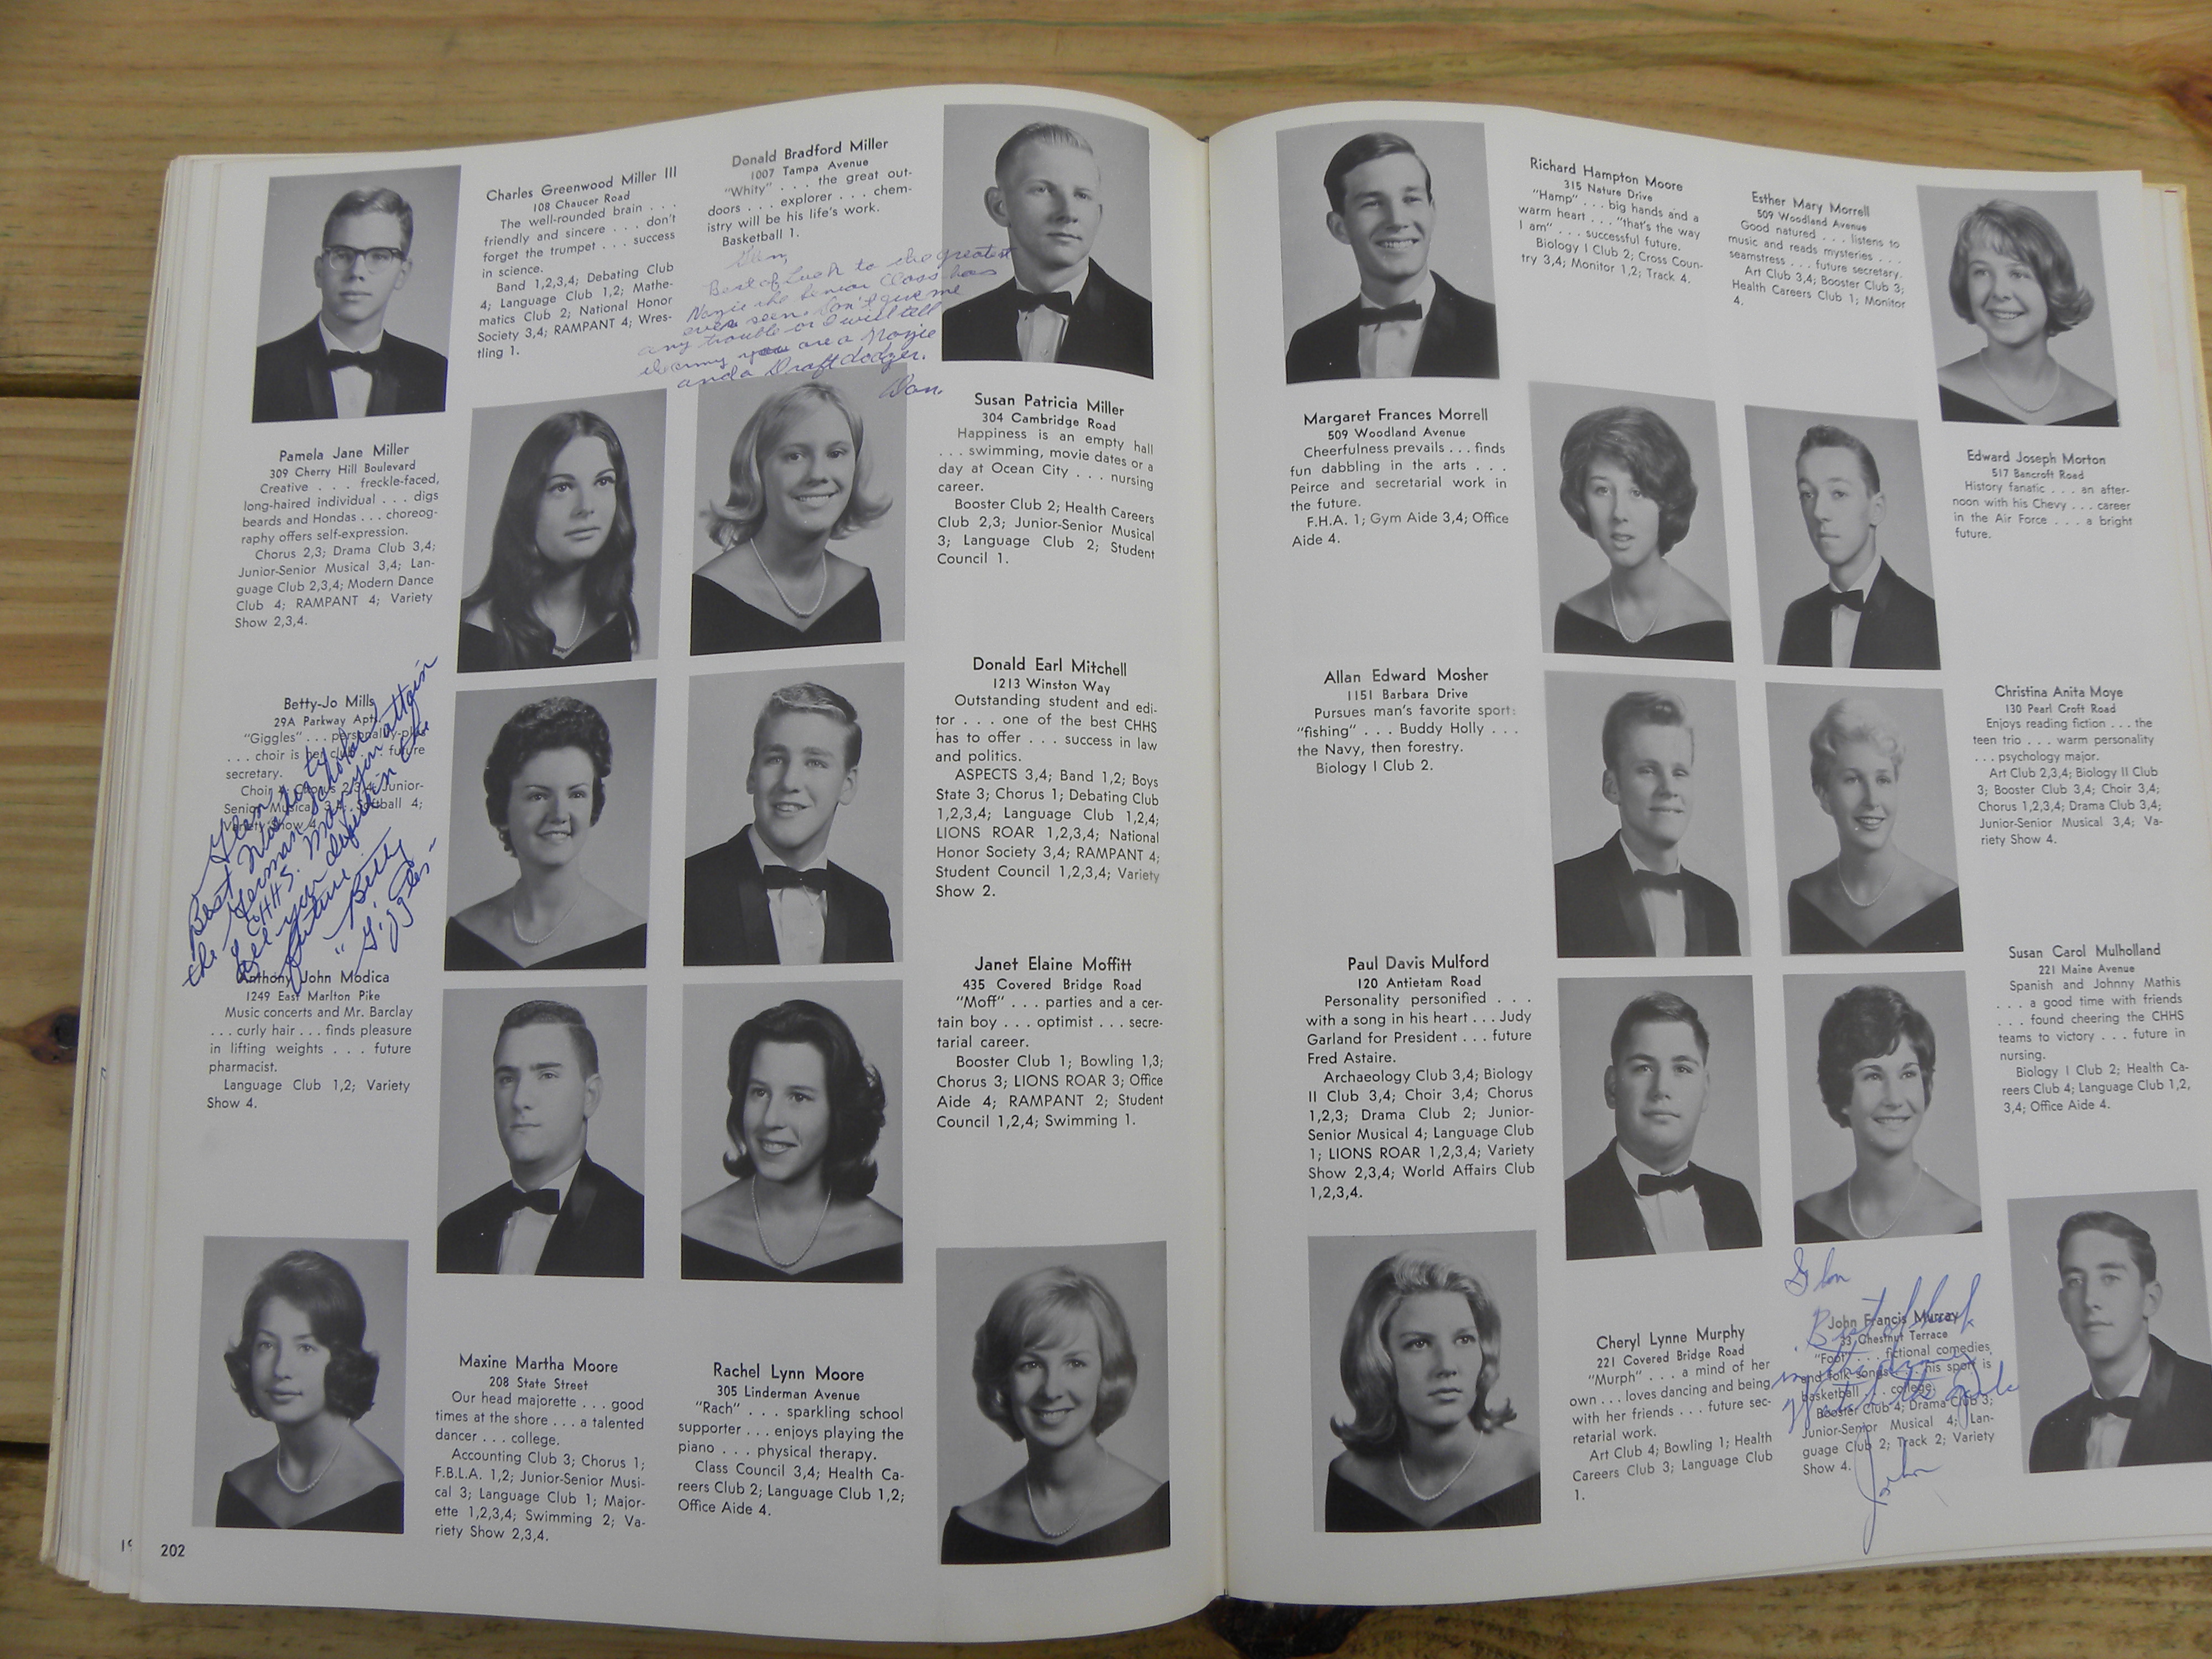 Charles Greenwood Miller III
108 Chaucer Road
The well-rounded brain . . .
friendly and sincere . . . don't
forget the trumpet . . . success
in science.
Band 1,2,3,4; Debating Club
4; Language Club 1,2; Mathe-
matics Club 2; National Honor
Society 3,4; RAMPANT 4; Wres-
tling 1.
Donald Bradford Miller
1007 Tampa Avenue
"Whity" . . . the great out-
doors . . . explorer . . . chem-
istry will be his life's work.
Basketball 1.
Glen,
Best of Luck to the greatest
Nazie the Senior Class has
ever seen. Don't give me
any trouble or I will tell
the army you are a Nazie
and a Draft dodger.
Don.
Pamela Jane Miller
309 Cherry Hill Boulevard
Creative . . . freckle-faced,
long-haired individual . . . digs
beards and Hondas . . . choreog-
raphy offers self-expression.
Chorus 2,3; Drama Club 3,4;
Junior-Senior Musical 3,4; Lan-
guage Club 2,3,4; Modern Dance
Club 4; RAMPANT 4; Variety
Show 2,3,4.
Susan Patricia Miller
304 Cambridge Road
Happiness is an empty hall
. . . swimming, movie dates or a
day at Ocean City . . . nursing
career.
Booster Club 2; Health Careers
Club 2,3; Junior-Senior Musical
3; Language Club 2; Student
Council 1.
Betty-Jo Mills
29A Parkway Apt.
"Giggles" . . . personality-plus
. . . choir is her club . . . future
secretary.
Choir 4; Chorus 2,3,4; Junior-
Senior Musical 3,4; Softball 4;
Variety Show 4.
Glen,
Best Wishes to
the German Scholar
of CHHS. May you attain
all your desires in the
future.
Betty
"Giggles"
Donald Earl Mitchell
1213 Winston Way
Outstanding student and edi-
tor . . . one of the best CHHS
has to offer . . . success in law
and politics.
ASPECTS 3,4; Band 1,2; Boys
State 3; Chorus 1; Debating Club
1,2,3,4; Language Club 1,2,4;
LIONS ROAR 1,2,3,4; National
Honor Society 3,4; RAMPANT 4;
Student Council 1,2,3,4; Variety
Show 2.
Anthony John Modica
1249 East Marlton Pike
Music concerts and Mr. Barclay
. . . curly hair . . . finds pleasure
in lifting weights . . . future
pharmacist.
Language Club 1,2; Variety
Show 4.
Janet Elaine Moffitt
435 Covered Bridge Road
"Moff" . . . parties and a cer-
tain boy . . . optimist . . . secre-
tarial career.
Booster Club 1; Bowling 1,3;
Chorus 3; LIONS ROAR 3; Office
Aide 4; RAMPANT 2; Student
Council 1,2,4; Swimming 1.
Maxine Martha Moore
208 State Street
Our head majorette . . . good
times at the shore . . . a talented
dancer . . . college.
Accounting Club 3; Chorus 1;
F.B.L.A. 1,2; Junior-Senior Musi-
cal 3; Language Club 1; Major-
ette 1,2,3,4; Swimming 2; Va-
riety Show 2,3,4.
Rachel Lynn Moore
305 Linderman Avenue
"Rach" . . . sparkling school
supporter . . . enjoys playing the
piano . . . physical therapy.
Class Council 3,4; Health Ca-
reers Club 2; Language Club 1,2;
Office Aide 4.
202
Richard Hampton Moore
315 Nature Drive
"Hamp" . . . big hands and a
warm heart . . . "that's the way
I am" . . . successful future.
Biology I Club 2; Cross Coun-
try 3,4; Monitor 1,2; Track 4.
Esther Mary Morrell
509 Woodland Avenue
Good natured . . . listens to
music and reads mysteries . . .
seamstress . . . future secretary.
Art Club 3,4; Booster Club 3;
Health Careers Club 1; Monitor
4.
Margaret Frances Morrell
509 Woodland Avenue
Cheerfulness prevails . . . finds
fun dabbling in the arts . . .
Peirce and secretarial work in
the future.
F.H.A. 1; Gym Aide 3,4; Office
Aide 4.
Edward Joseph Morton
517 Bancroft Road
History fanatic . . . an after-
noon with his Chevy . . . career
in the Air Force . . . a bright
future.
Allan Edward Mosher
1151 Barbara Drive
Pursues man's favorite sport:
"fishing" . . . Buddy Holly . . .
the Navy, then forestry.
Biology I Club 2.
Christina Anita Moye
130 Pearl Croft Road
Enjoys reading fiction . . . the
teen trio . . . warm personality
. . . psychology major.
Art Club 2,3,4; Biology II Club
3; Booster Club 3,4; Choir 3,4;
Chorus 1,2,3,4; Drama Club 3,4;
Junior-Senior Musical 3,4; Va-
riety Show 4.
Paul Davis Mulford
120 Antietam Road
Personality personified . . .
with a song in his heart . . . Judy
Garland for President . . . future
Fred Astaire.
Archaeology Club 3,4; Biology
II Club 3,4; Choir 3,4; Chorus
1,2,3; Drama Club 2; Junior-
Senior Musical 4; Language Club
1; LIONS ROAR 1,2,3,4; Variety
Show 2,3,4; World Affairs Club
1,2,3,4.
Susan Carol Mulholland
221 Maine Avenue
Spanish and Johnny Mathis
. . . a good time with friends
. . . found cheering the CHHS
teams to victory . . . future in
nursing.
Biology I Club 2; Health Ca-
reers Club 4; Language Club 1,2,
3,4; Office Aide 4.
Cheryl Lynne Murphy
221 Covered Bridge Road
"Murph" . . . a mind of her
own . . . loves dancing and being
with her friends . . . future sec-
retarial work.
Art Club 4; Bowling 1; Health
Careers Club 3; Language Club
1.
John Francis Murray
33 Chestnut Terrace
"Foot" . . . fictional comedies
and folk songs . . . his sport is
basketball . . . college.
Booster Club 4; Drama Club 3;
Junior-Senior Musical 4; Lan-
guage Club 2; Track 2; Variety
Show 4.
Glen
Best of luck
in the army
Watch the
John